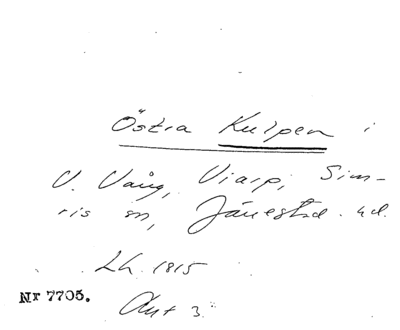 Östra Kulpen i
V. Vång, Viarp, Sim-
ris sn, Järrestad. hd.
Lh. 1815
Akt 3.
Nr 7705.